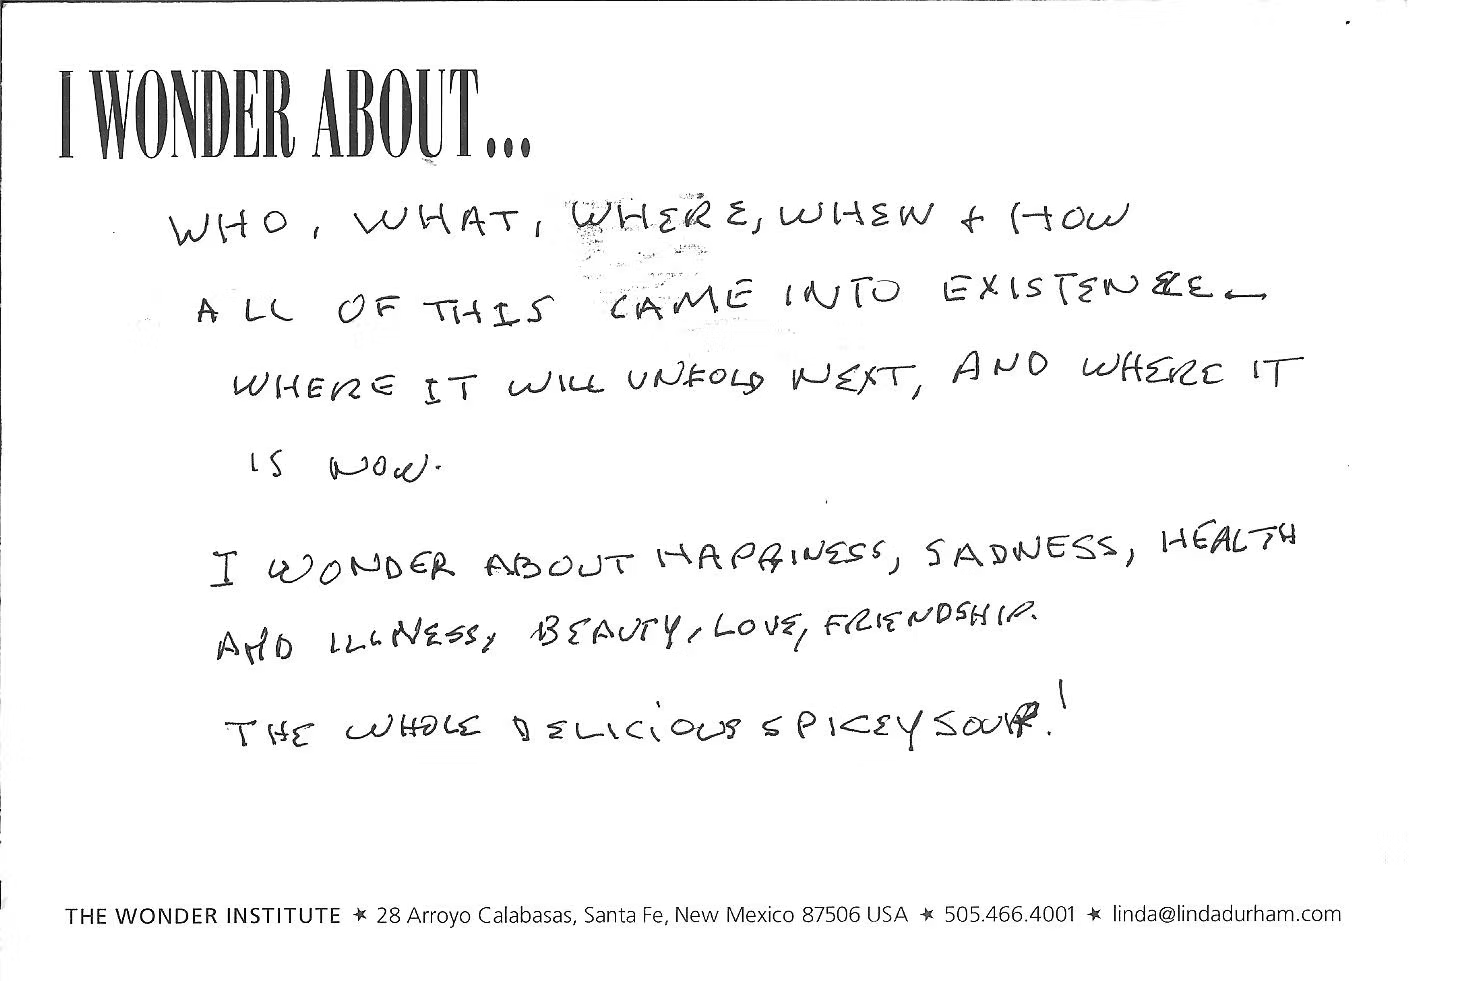 I WONDER ABOUT...
WHO, WHAT, WHERE, WHEN + HOW
ALL OF THIS CAME INTO EXISTENCE—
WHERE IT WILL UNFOLD NEXT, AND WHERE IT
IS NOW.
I WONDER ABOUT HAPPINESS, SADNESS, HEALTH
AND ILLNESS, BEAUTY, LOVE, FRIENDSHIP.
THE WHOLE DELICIOUS SPICEY SOUP!
THE WONDER INSTITUTE ★ 28 Arroyo Calabasas, Santa Fe, New Mexico 87506 USA ★ 505.466.4001 ★ linda@lindadurham.com